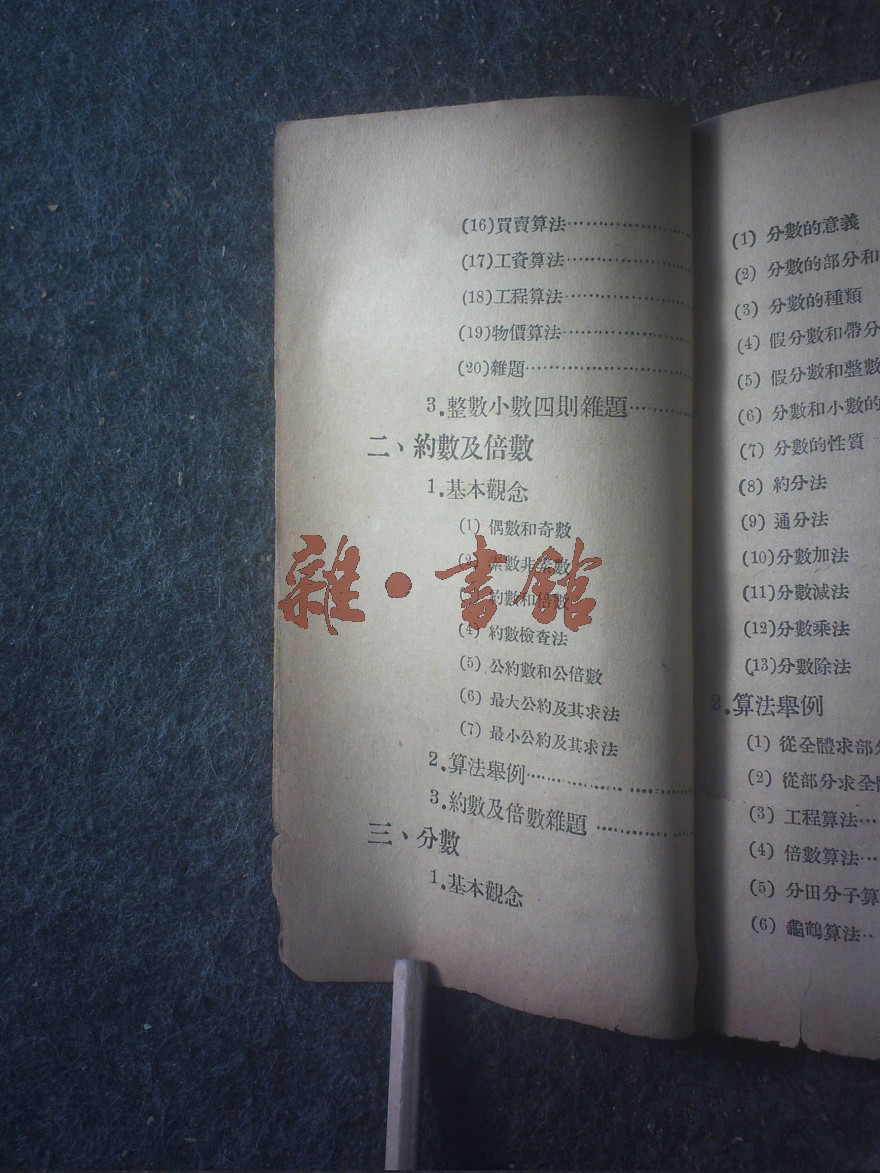 (16)買賣算法
(17)工資算法
(18)工程算法
(19)物價算法
(20)雜題
3.整數小數四則雜題
二、約數及倍數
1.基本觀念
(1) 偶數和奇數
(2) 素數非素數
(3) 約數和倍數
(4) 約數檢查法
(5) 公約數和公倍數
(6) 最大公約及其求法
(7) 最小公約及其求法
2.算法舉例
3.約數及倍數雜題
三、分數
1.基本觀念
雜·書館
(1) 分數的意義
(2) 分數的部分和
(3) 分數的種類
(4) 假分數和帶分
(5) 假分數和整數
(6) 分數和小數的
(7) 分數的性質
(8) 約分法
(9) 通分法
(10)分數加法
(11)分數減法
(12)分數乘法
(13)分數除法
2.算法舉例
(1) 從全體求部分
(2) 從部分求全
(3) 工程算法
(4) 倍數算法
(5) 分田分子算
(6) 龜鶴算法